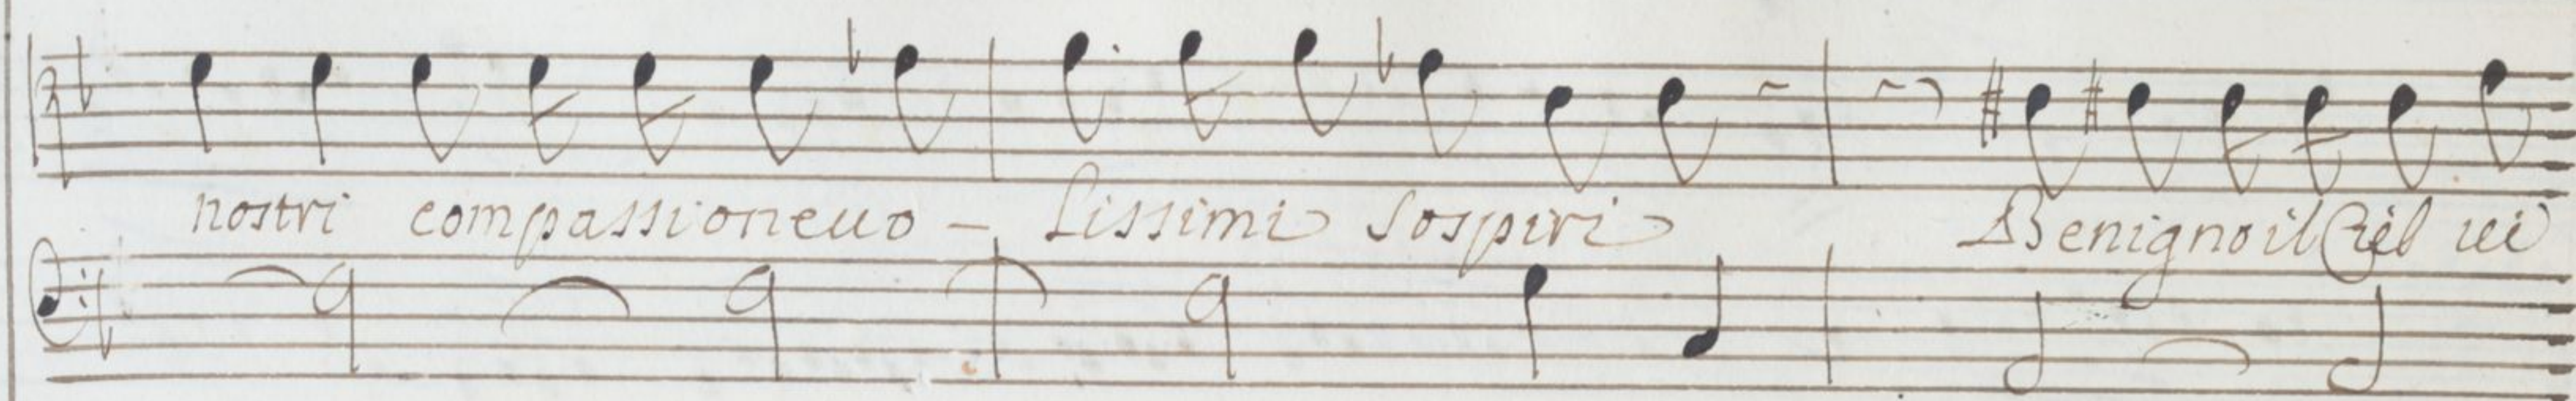 nostri compassioneuo - lissimi sospiri Benigno il Ciel ui